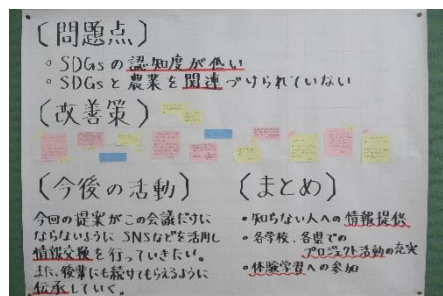 〔問題点〕
○ SDGsの認知度が低い
○ SDGsと農業を関連づけられていない
〔改善策〕
〔今後の活動〕
今回の提案がこの会議だけに
ならないように SNSなどを活用し
情報交換を行っていきたい。
また、後輩にも続けてもらえるように
伝承していく。
〔まとめ〕
・知らない人への情報提供
・各学校、各県での
プロジェクト活動の充実
・体験学習への参加